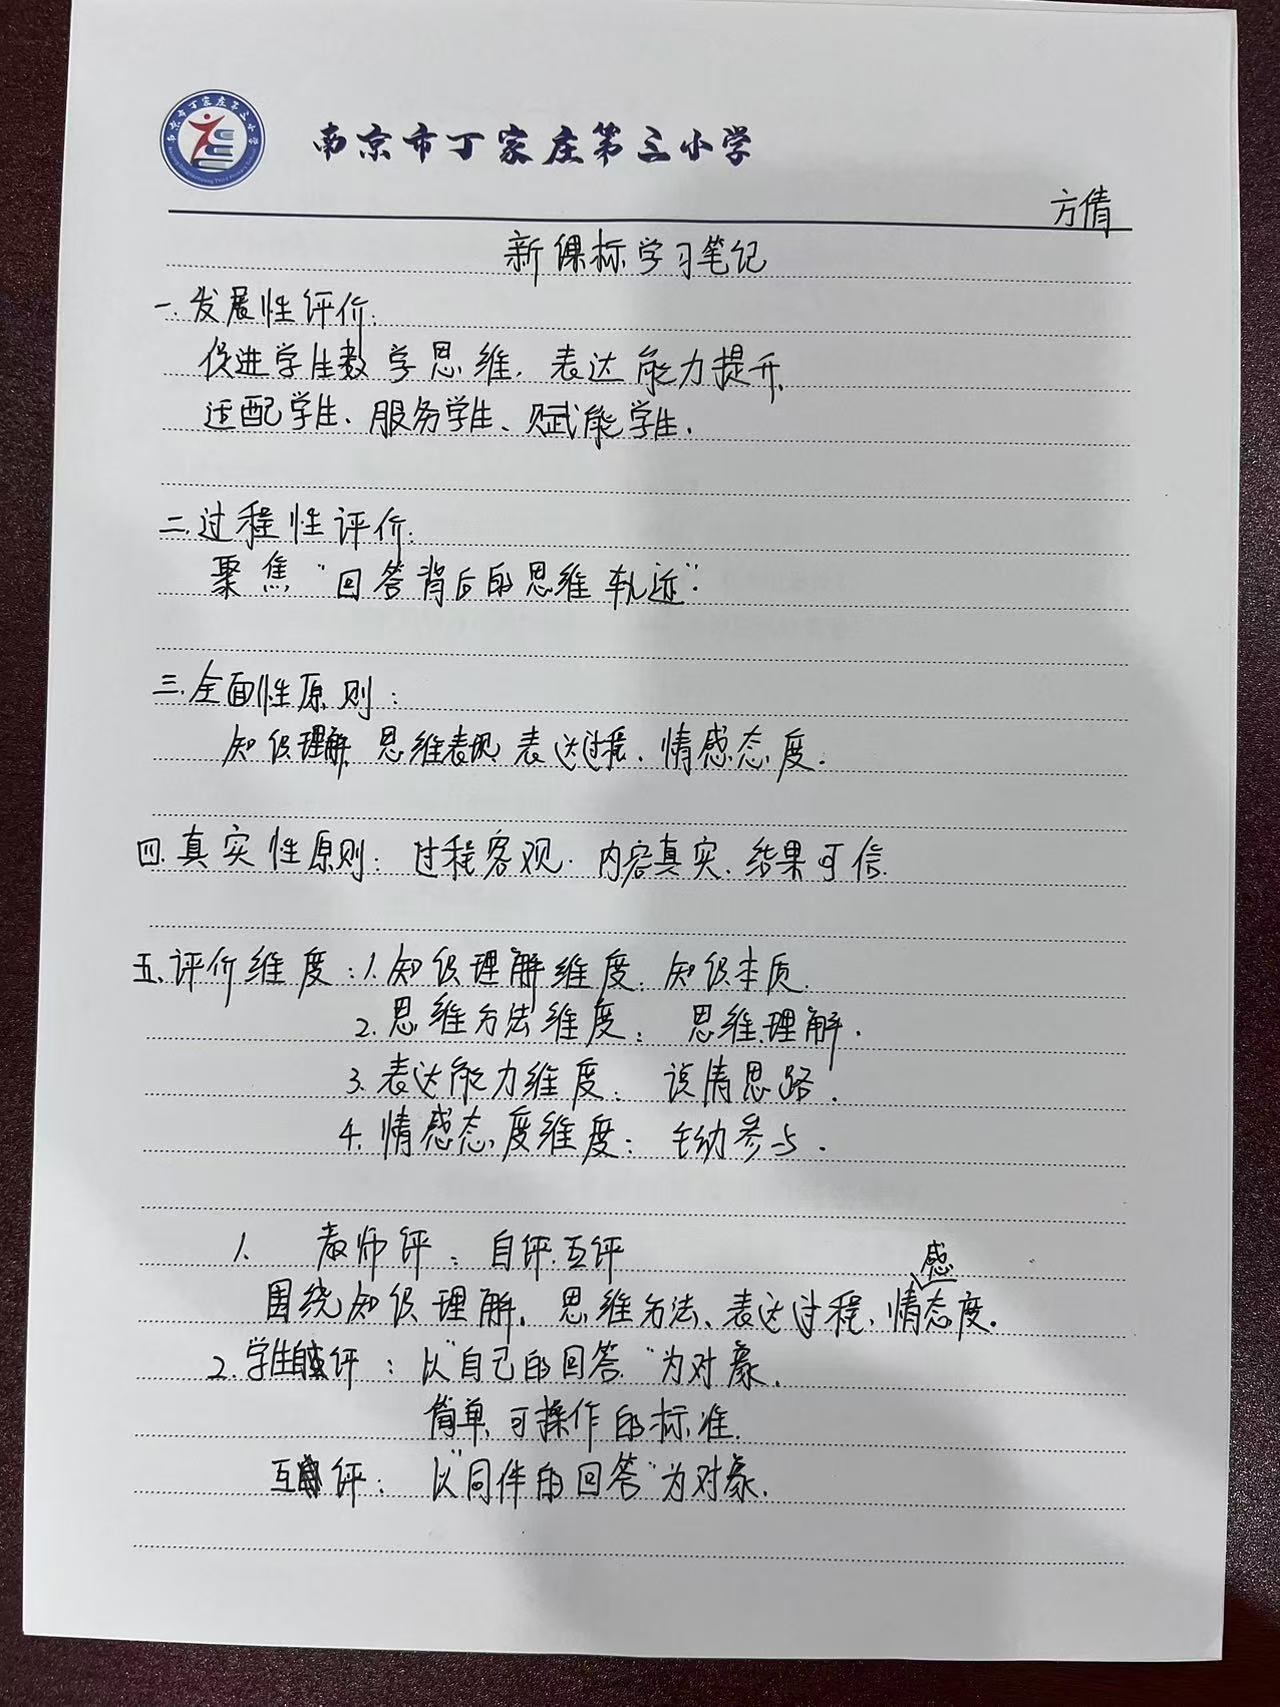 南京市丁家庄第三小学
南京市丁家庄第三小学
方倩
新课标学习笔记
一.发展性评价:
促进学生数学思维、表达能力提升.
适配学生、服务学生、赋能学生.
二.过程性评价:
聚焦“回答背后的思维轨迹”.
三.全面性原则:
知识理解、思维表现、表达过程、情感态度.
四.真实性原则:过程客观.内容真实.结果可信.
五.评价维度:1.知识理解维度:知识本质.
2.思维方法维度:思维理解.
3.表达能力维度:说清思路.
4.情感态度维度:主动参与.
1. 教师评:自评.互评
围绕知识理解、思维方法、表达过程、情感态度.
2.学生自评:以“自己的回答”为对象.
简单、可操作的标准.
互评:以“同伴的回答”为对象.